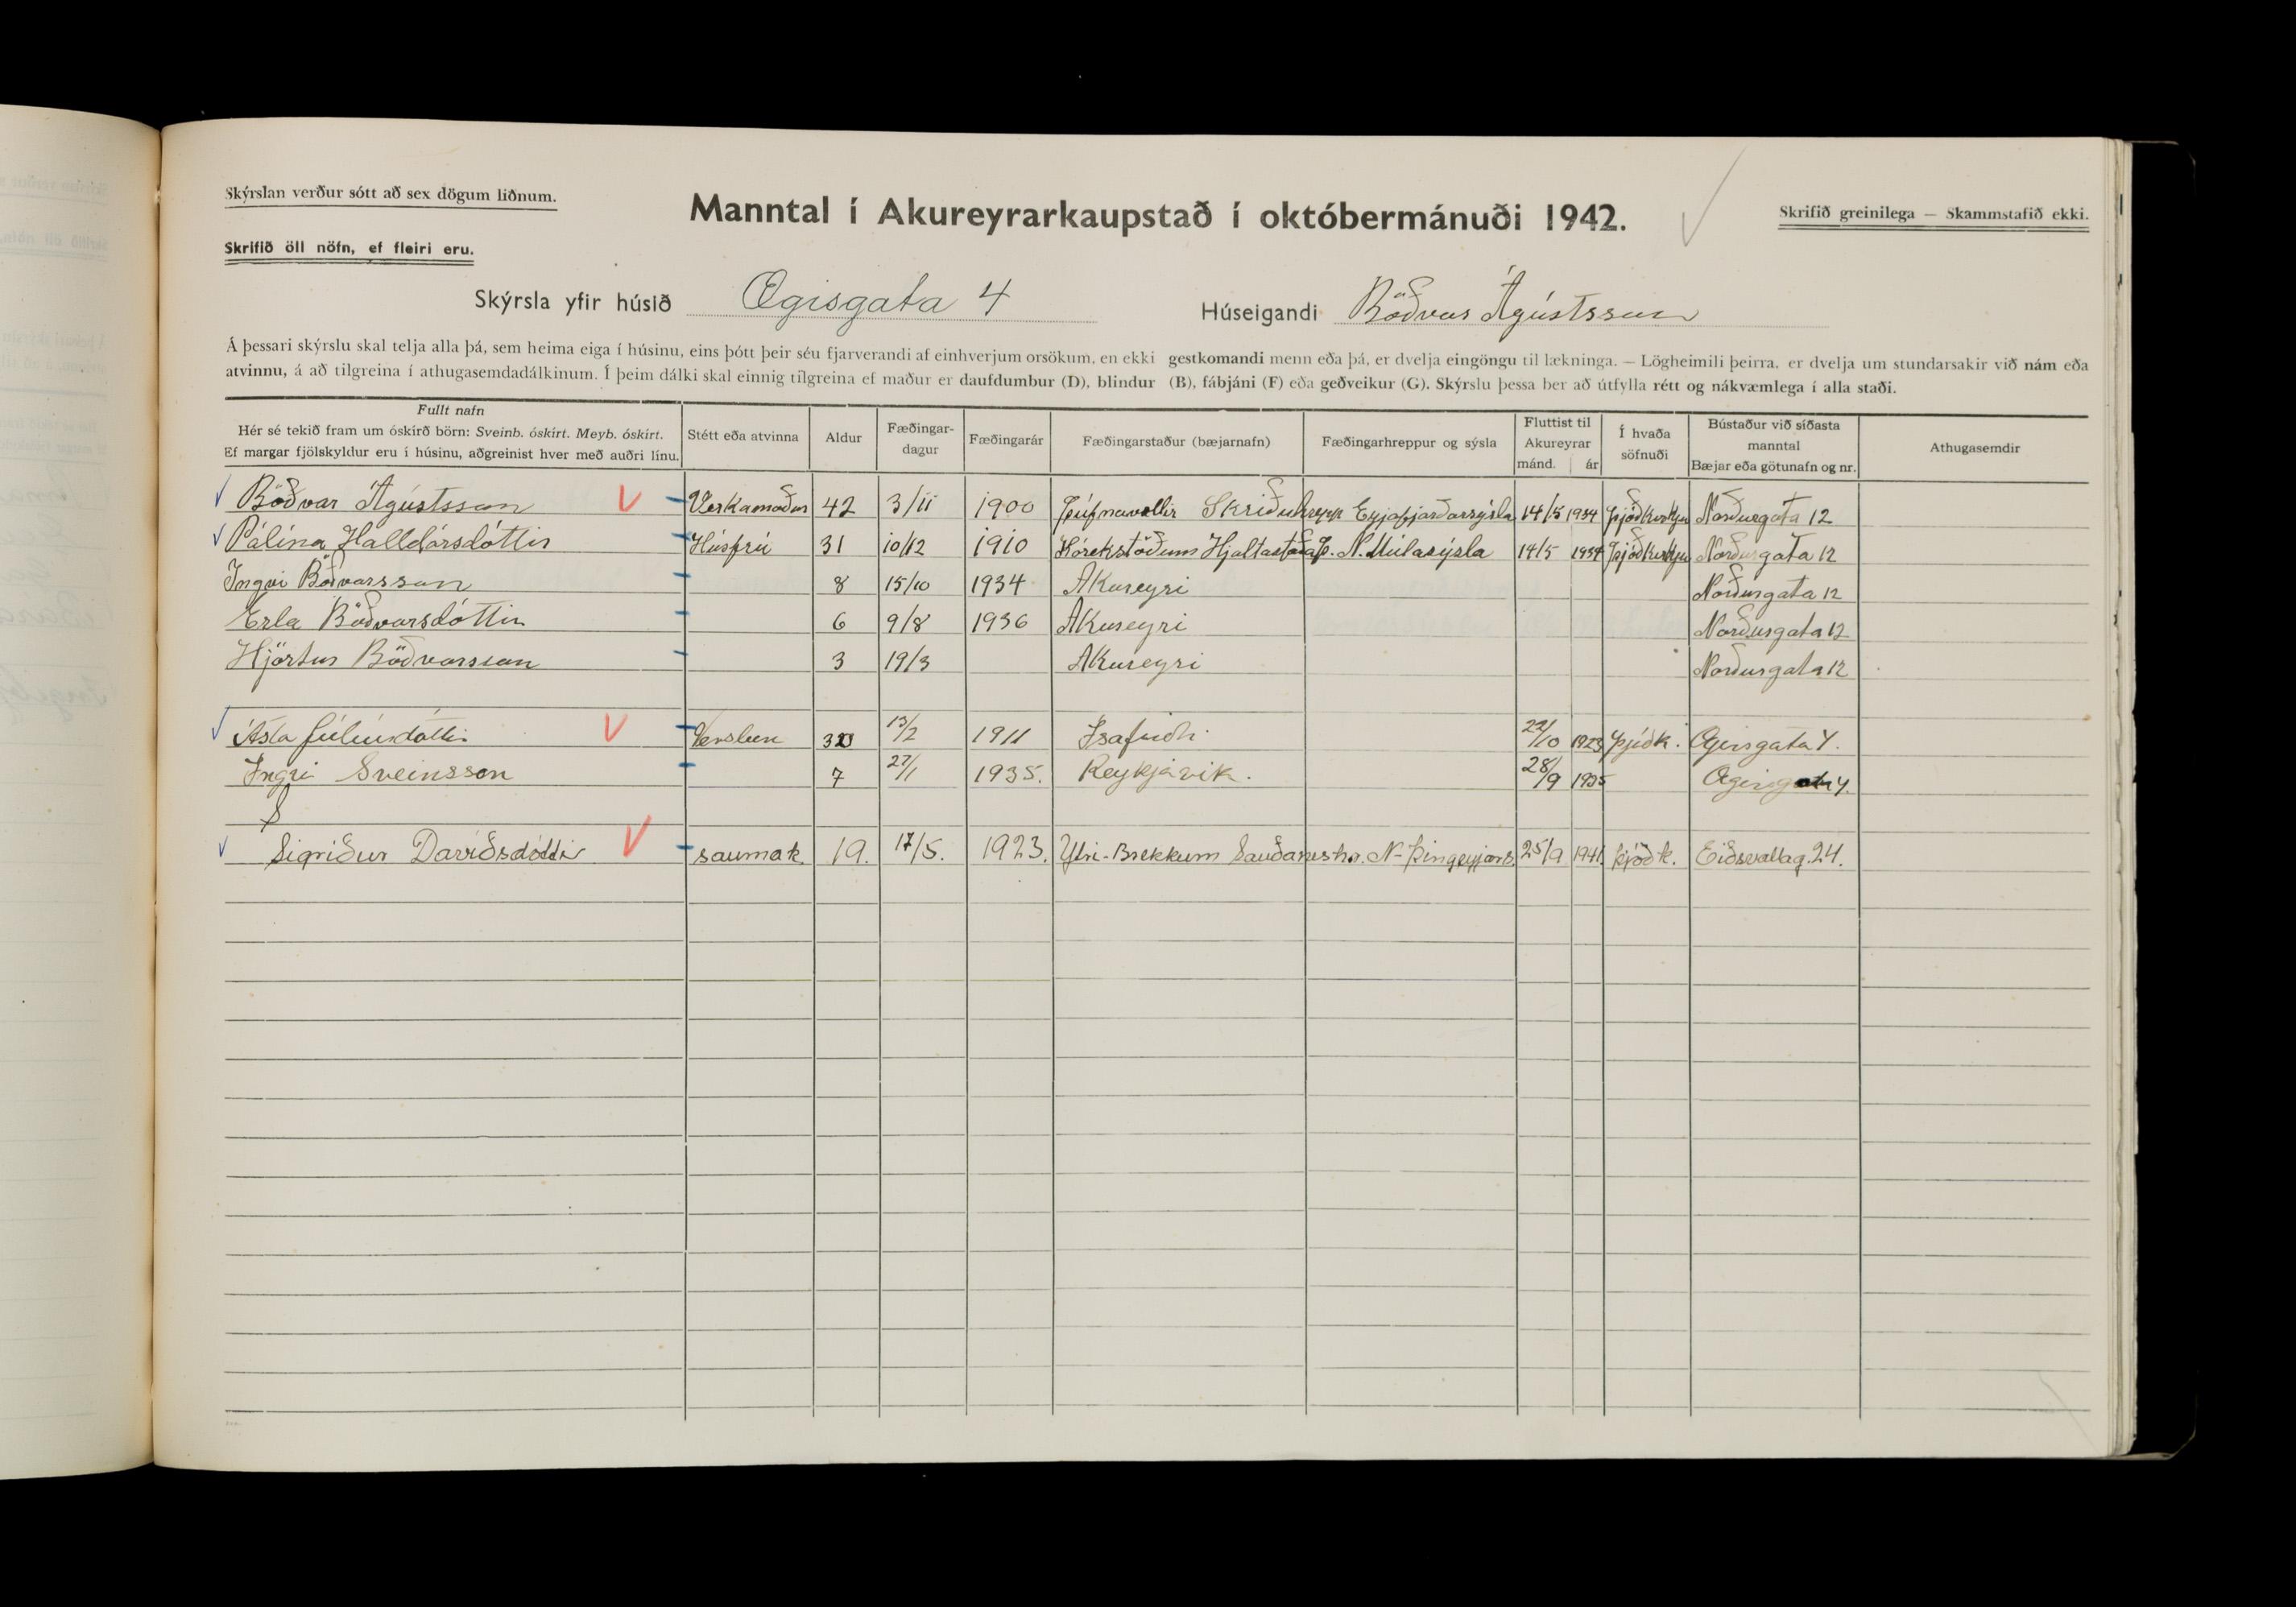 Skýrslan verður sótt að sex dögum liðnum.
Skrifið öll nöfn, ef fleiri eru.
Manntal í Akureyrarkaupstað í októbermánuði 1942.
Skrifið greinilega — Skammstafið ekki.
Skýrsla yfir húsið Ægisgata 4 Húseigandi Böðvar Ágústsson
Á þessari skýrslu skal telja alla þá, sem heima eiga í húsinu, eins þótt þeir séu fjarverandi af einhverjum orsökum, en ekki gestkomandi menn eða þá, er dvelja eingöngu til lækninga. — Lögheimili þeirra, er dvelja um stundarsakir við nám eða
atvinnu, á að tilgreina í athugasemdadálkinum. Í þeim dálki skal einnig tilgreina ef maður er daufdumbur (D), blindur (B), fábjáni (F) eða geðveikur (G). Skýrslu þessa ber að útfylla rétt og nákvæmlega í alla staði.
Fullt nafn
Hér sé tekið fram um óskírð börn: Sveinb. óskírt. Meyb. óskírt.
Ef margar fjölskyldur eru í húsinu, aðgreinist hver með auðri línu.
Stétt eða atvinna
Aldur
Fæðingar-
dagur
Fæðingarár
Fæðingarstaður (bæjarnafn)
Fæðingarhreppur og sýsla
Fluttist til
Akureyrar
mánd. ár
Í hvaða
söfnuði
Bústaður við síðasta
manntal
Bæjar eða götunafn og nr.
Athugasemdir
Böðvar Ágústsson Verkamaður 42 3/11 1900 Þúfnavellir Skriðuhrepp Eyjafjarðarsýsla 14/5 1934 Þjóðkirkju Norðurgata 12
Pálína Halldórsdóttir Húsfrú 31 10/12 1910 Hórekstöðum Hjaltastaðaþ. N. Múlasýsla 14/5 1934 Þjóðkirkju Norðurgata 12
Ingvi Böðvarsson 8 15/10 1934 Akureyri Norðurgata 12
Erla Böðvarsdóttir 6 9/8 1936 Akureyri Norðurgata 12
Hjörtur Böðvarsson 3 19/3 Akureyri Norðurgata 12
Ásta Júlíusdóttir 13/2 1911 Ísafirði 1923 Þjóðk. Ægisgata 4.
Ingvi Sveinsson 7 27/1 1935. Reykjavík. 28/9 1935 Ægisgata 4.
S
Sigríður Davíðsdóttir saumak. 19. 17/5. 1923. Ytri-Brekkum Sauðaneshr. N-Þingeyjars. 25/9 1941. Þjóðk. Eiðsvallag. 24.